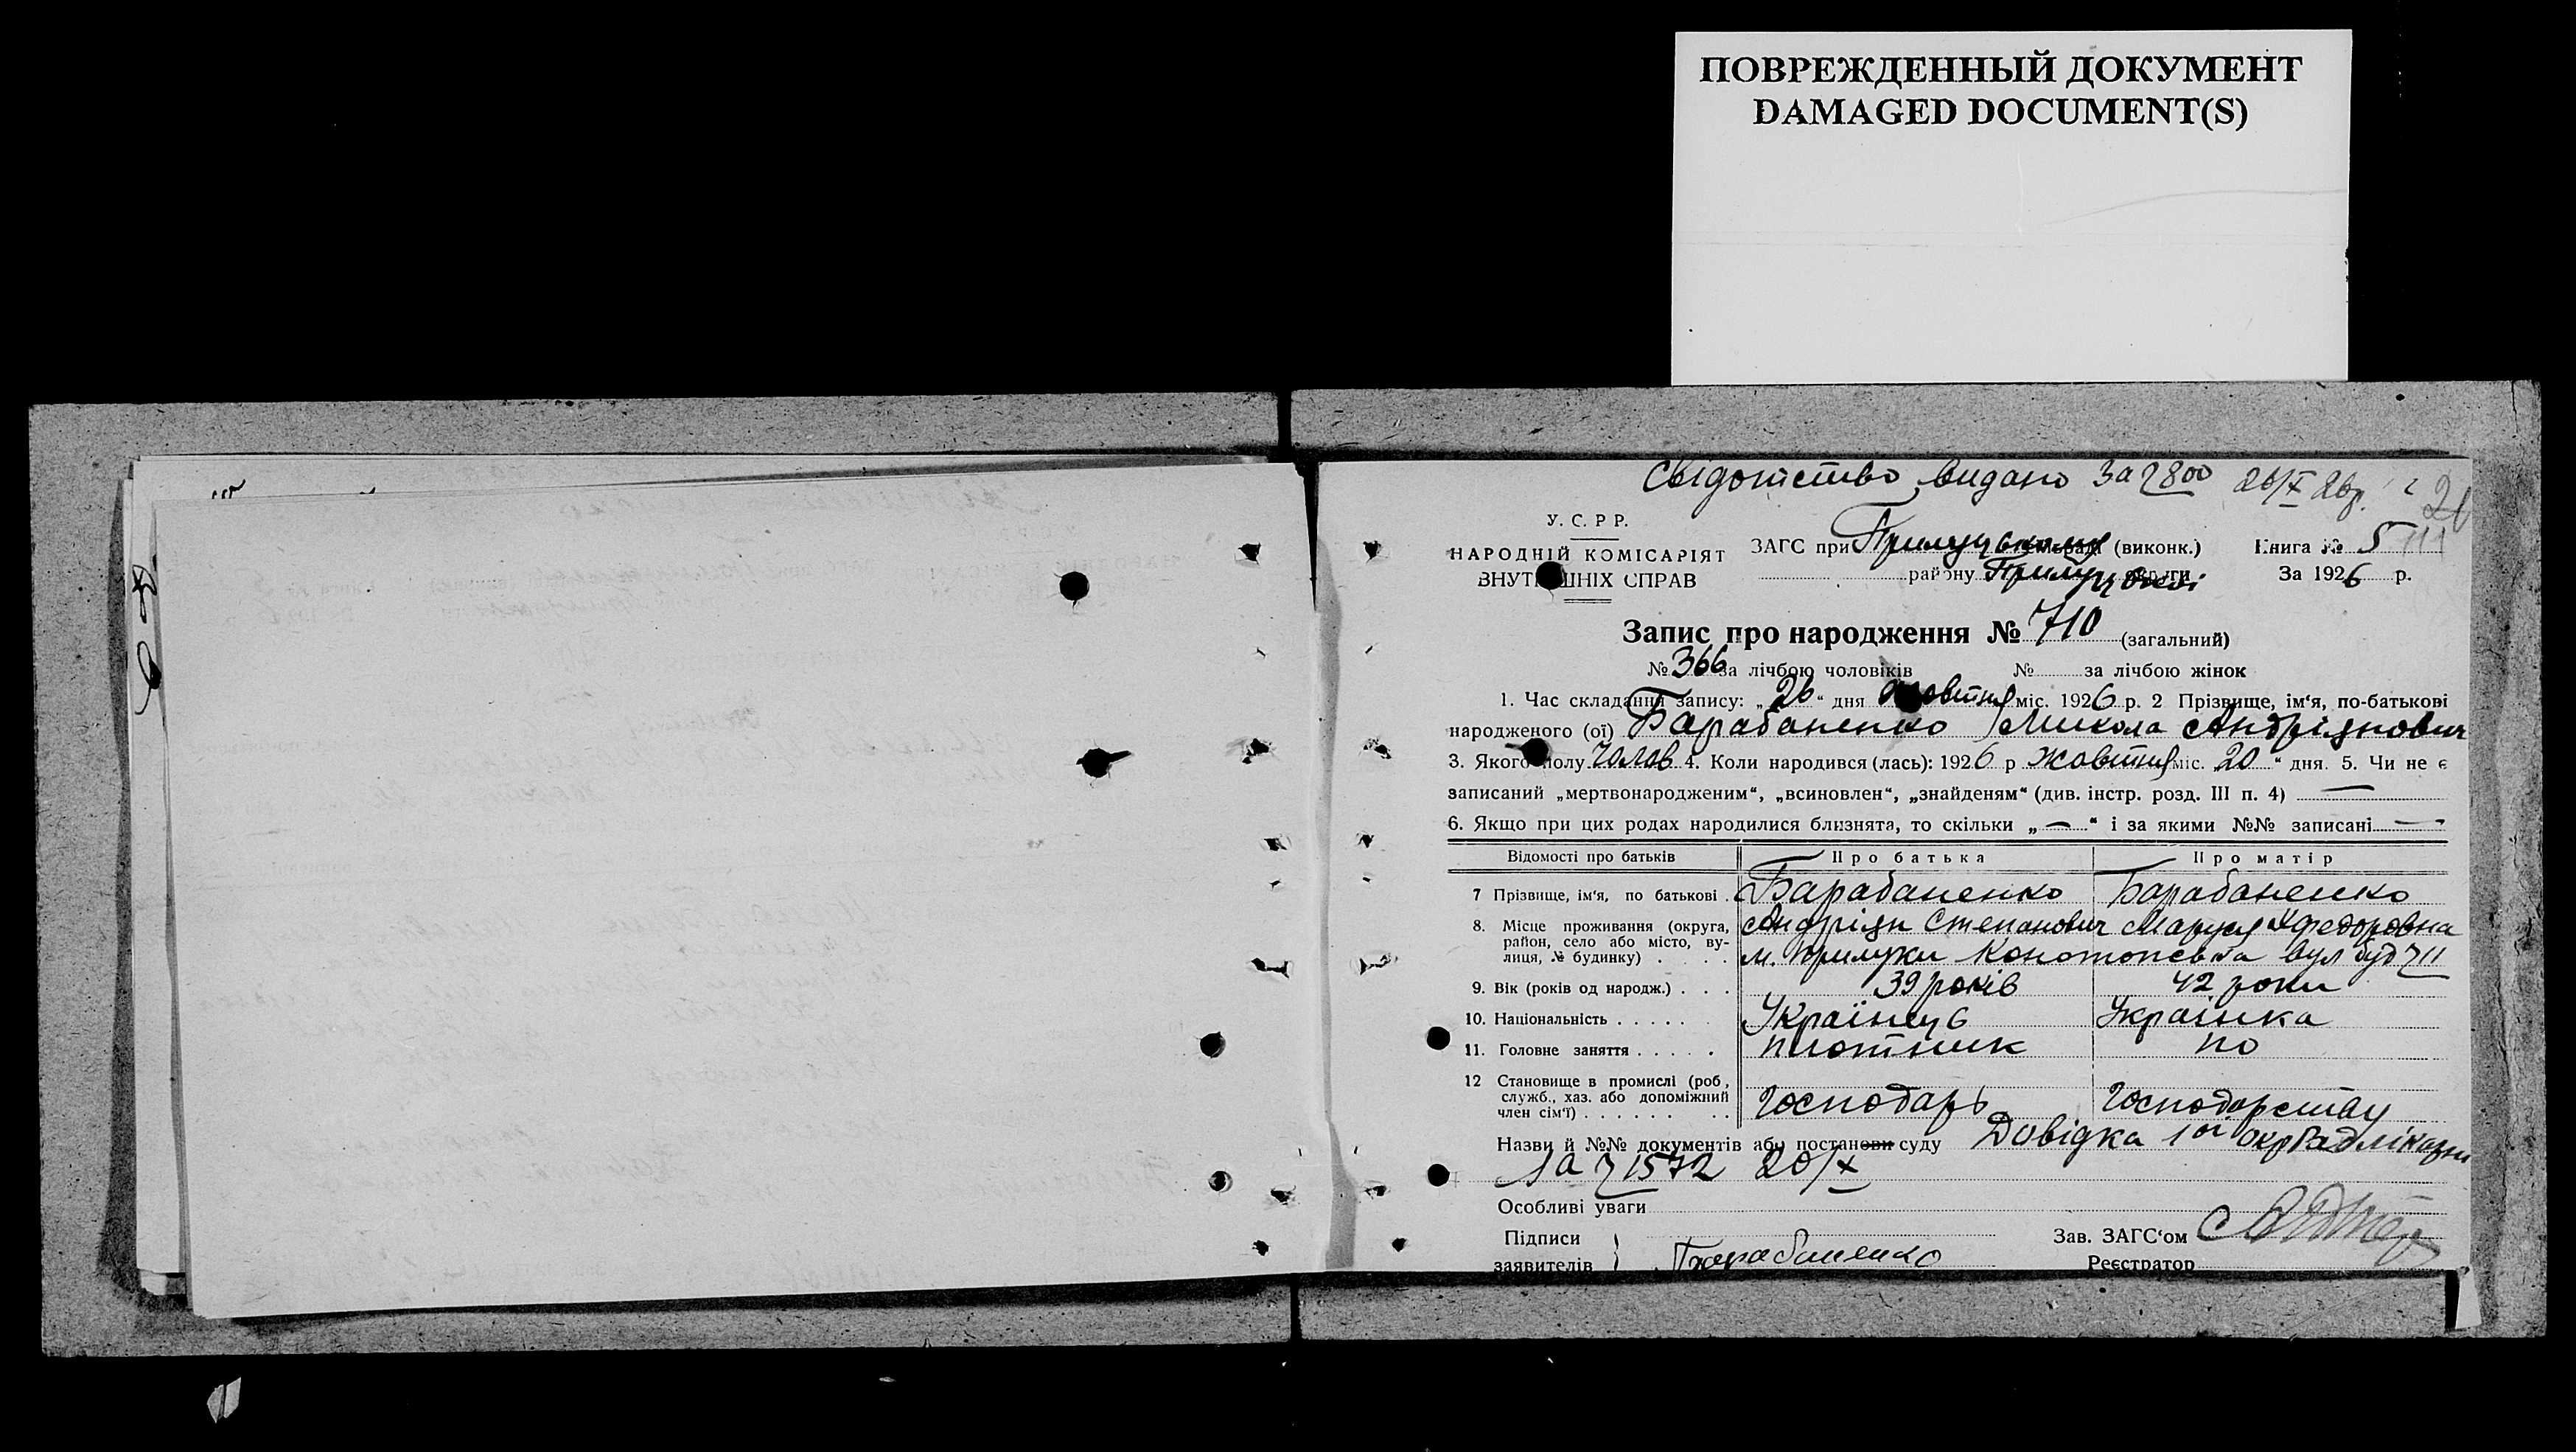 ПОВРЕЖДЕННЫЙ ДОКУМЕНТ
DAMAGED DOCUMENT(S)
Свідотство видано за 800 26/X 26р.
У. С. Р Р.
НАРОДНІЙ КОМІСАРІЯТ
ВНУТРІШНІХ СПРАВ
ЗАГС при Прилуцькому (виконк.)
району Прилуцької округи
Книга № 5
За 1926 р.
Запис про народження № 710 (загальний)
№ 366 за лічбою чоловіків № за лічбою жінок
1. Час складання запису: „26“ дня жовтня міс. 1926 р. 2 Прізвище, ім‘я, по-батькові
народженого (ої) Барабаненко Микола Андріянович
3. Якого полу Чолов 4. Коли народився (лась): 1926 р Жовтня міс. 20 “ дня. 5. Чи не є
записаний „мертвонародженим“, „всиновлен“, „знайденям“ (див. інстр. розд. III п. 4) —
6. Якщо при цих родах народилися близнята, то скільки „—“ і за якими №№ записані —
Відомості про батьків Про батька Про матір
7 Прізвище, ім‘я, по батькові . Барабаненко Барабаненко
8. Місце проживання (округа, район, село або місто, вулиця, № будинку) . . . . Андріян Степанович Маруся Федоровна
м. Прилуки Конотопська вул буд 711
9. Вік (років од народж.) . . . 39 років 42 роки
10. Національність . . . . . . Українець Українка
11. Головне заняття . . . . . плотник по
12 Становище в промислі (роб, служб., хаз. або допоміжний член сім‘ї) . . . . . . . . Господарь Господарству
Назви й №№ документів або постанови суду Довідка 1ої окр Радлікарні
за 1572 20/X
Особливі уваги
Підписи
заявителів } Барабаненко
Зав. ЗАГС‘ом
Реєстратор